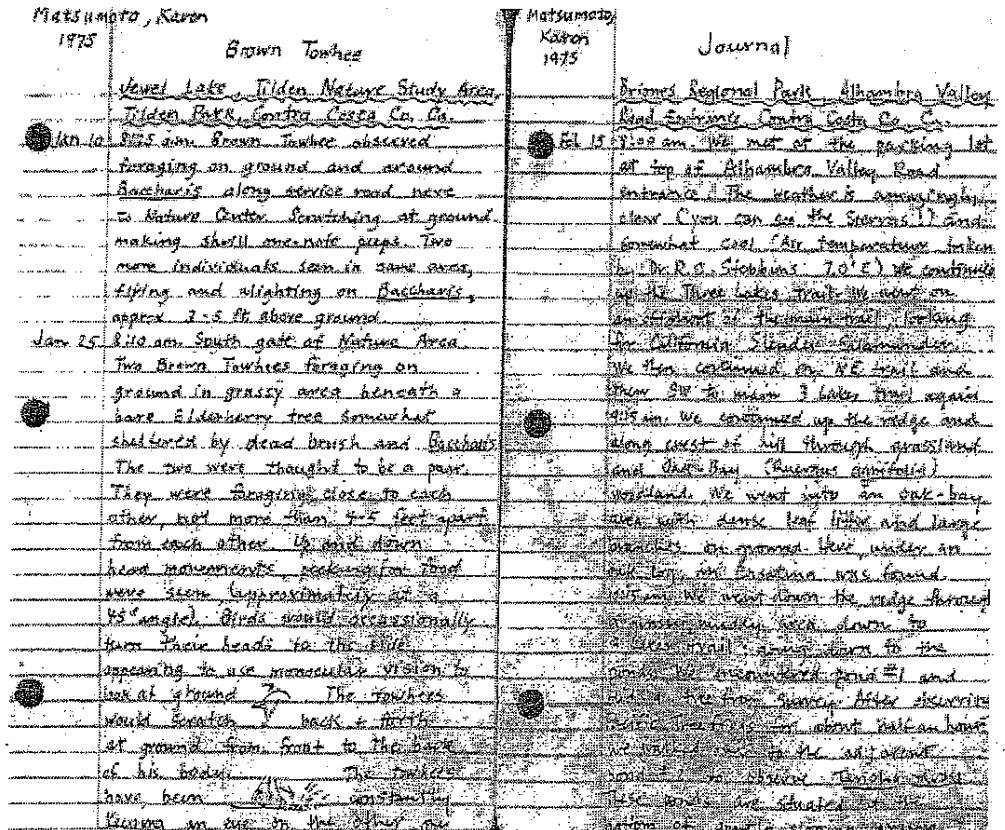 Matsumoto, Karen
1975
Brown Towhee
Jewel Lake, Tilden Nature Study Area,
Tilden Park, Contra Costa Co, Ca.
Jan 10 8:15 a.m. Brown Towhee observed
foraging on ground and around
Baccharis along service road next
to Nature Center. Scratching at ground
making shrill one-note peeps. Two
more individuals seen in same area,
flying and alighting on Baccharis,
approx 3-5 ft above ground.
Jan 25 8:10 am. South gate of Nature Area.
Two Brown Towhees foraging on
ground in grassy area beneath a
bare Elderberry tree somewhat
sheltered by dead brush and Baccharis
The two were thought to be a pair.
They were foraging close to each
other, not more than 4-5 feet apart
from each other. Up and down
head movements, pecking for food
were seen (approximately at a
45° angle). Birds would occasionally
turn their heads to the side
appearing to use monocular vision to
look at ground The towhees
would scratch back & forth
at ground from front to the back
of his body. The towhees
have been constantly
keeping an eye on the other one
Matsumoto,
Karen
1975
Journal
Briones Regional Park, Alhambra Valley
Road Entrance Contra Costa Co, C.
Feb 15 9:00 am. We met at the parking lot
at top of Alhambra Valley Road
entrance. The weather is amazingly
clear (you can see the Sierras!!) and
somewhat cool (Air temperature taken
by Dr. R.C. Stebbins We continue
up the Three Lakes trail. We went on
an of the main trail, looking
for California Slender Salamander.
We then continued on NE trail and
then SW to main 3 Lakes trail again
9:45 am. We continued up the ridge and
along crest of hill through grassland
and Oak-Bay (Quercus agrifolia)
woodland. We went into an oak-bay
area with dense leaf litter and large
branches on ground. Here, under an
oak log, an Ensatina was found.
We went down the ridge through
down to
down to the
ponds. We encountered pond #1 and
After
Pacific Treefrogs for about half an hour
we walked to the adjacent
pond to observe
These ponds are situated